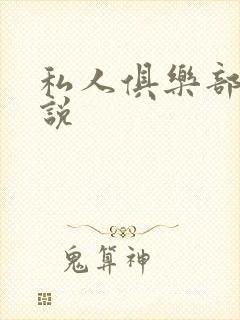 私人俱樂部
說
鬼算神